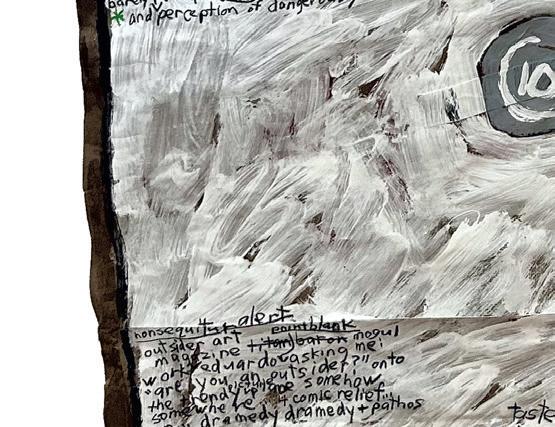 * and perception of dangerous
10
nonsequitur alert
outsider art pointblank
magazine titan baron mogul
work eduardo asking me:
"are you an outsider?" onto
the trendy somehow
somewhere 4 comic relief
dramedy dramedy + pathos
taste